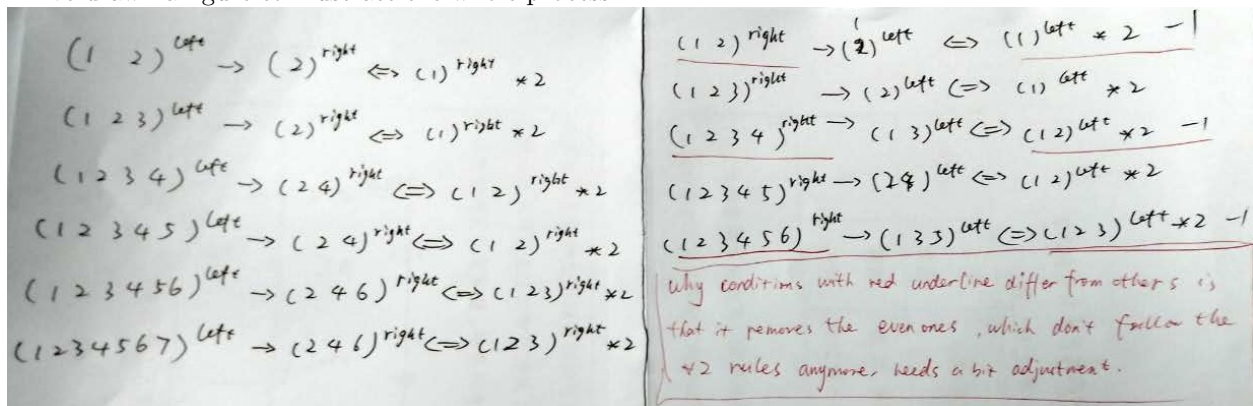 (1 2)^left → (2)^right ⇔ (1)^right *2
(1 2 3)^left → (2)^right ⇔ (1)^right *2
(1 2 3 4)^left → (2 4)^right ⇔ (1 2)^right *2
(1 2 3 4 5)^left → (2 4)^right ⇔ (1 2)^right *2
(1 2 3 4 5 6)^left → (2 4 6)^right ⇔ (1 2 3)^right *2
(1 2 3 4 5 6 7)^left → (2 4 6)^right ⇔ (1 2 3)^right *2
(1 2)^right → (1)^left ⇔ (1)^left * 2 - 1
(1 2 3)^right → (2)^left ⇔ (1)^left *2
(1 2 3 4)^right → (1 3)^left ⇔ (1 2)^left *2 - 1
(1 2 3 4 5)^right → (2 4)^left ⇔ (1 2)^left *2
(1 2 3 4 5 6)^right → (1 3 5)^left ⇔ (1 2 3)^left *2 - 1
Why conditions with red underline differ from others is
that it removes the even ones, which don't follow the
*2 rules anymore, needs a bit adjustment.